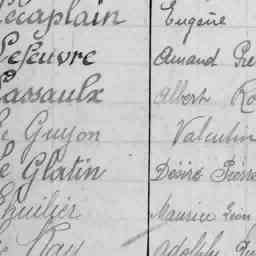 Lecaplain Eugène
Lefeuvre Amand Pie
Lassaulx Albert Ro
Le Guyon Valentin
Le Glatin Désiré Pierre
Lhuilier Maurice Léon
Le Hay Adolphe